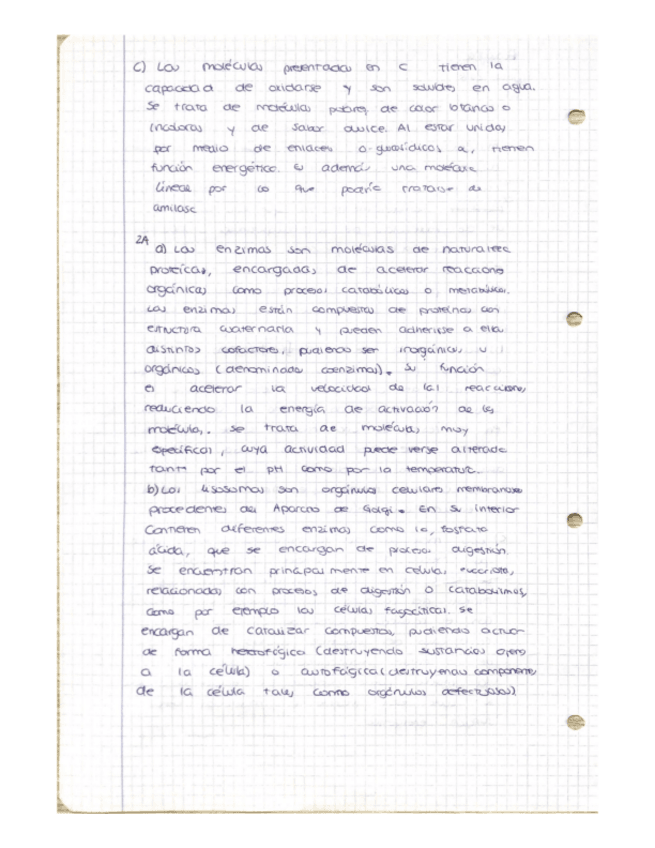 C) Las moléculas presentadas en C tienen la
capacidad de oxidarse y son solubles en agua.
Se trata de moléculas pobres de color blanco o
incoloras y de sabor dulce. Al estar unidas
por medio de enlaces o-glucosídicos α, tienen
función energética. Es además una molécula
lineal por lo que podría tratarse de
amilasa
2A
a) Las enzimas son moléculas de naturaleza
proteicas, encargadas de acelerar reacciones
orgánicas como procesos catabólicos o metabólicos.
Las enzimas están compuestas de proteínas con
estructura cuaternaria y pueden adherirse a ellas
distintos cofactores, pudiendo ser inorgánicos u
orgánicos (denominadas coenzimas). Su función
es acelerar la velocidad de las reacciones,
reduciendo la energía de activación de las
moléculas. Se trata de moléculas muy
específicas, cuya actividad puede verse alterada
tanto por el pH como por la temperatura.
b) Los lisosomas son orgánulos celulares membranosos
procedentes del Aparato de Golgi. En su interior
contienen diferentes enzimas como la fosfato
ácida, que se encargan de procesos digestión.
Se encuentran principalmente en células eucariotas,
relacionadas con procesos de digestión o catabolismos,
como por ejemplo las células fagocíticas. Se
encargan de catalizar compuestos, pudiendo actuar
de forma heterofágica (destruyendo sustancias ajenas
a la célula) o autofágica (destruyendo componentes
de la célula tales como orgánulos defectuosos)